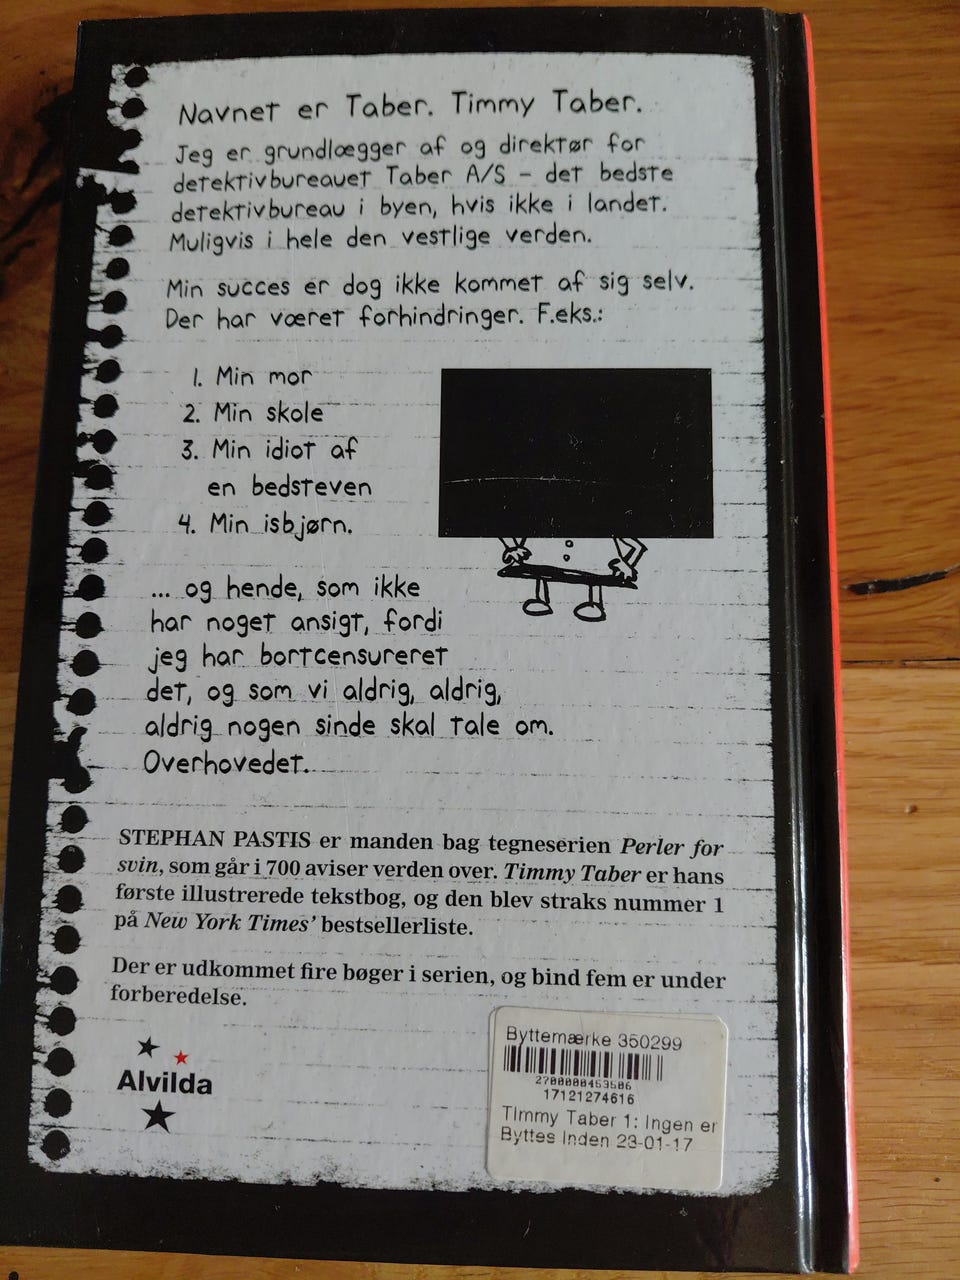 Navnet er Taber. Timmy Taber.
Jeg er grundlægger af og direktør for
detektivbureauet Taber A/S – det bedste
detektivbureau i byen, hvis ikke i landet.
Muligvis i hele den vestlige verden.
Min succes er dog ikke kommet af sig selv.
Der har været forhindringer. F.eks.:
1. Min mor
2. Min skole
3. Min idiot af
en bedsteven
4. Min isbjørn.
... og hende, som ikke
har noget ansigt, fordi
jeg har bortcensureret
det, og som vi aldrig, aldrig,
aldrig nogen sinde skal tale om.
Overhovedet.
STEPHAN PASTIS er manden bag tegneserien Perler for
svin, som går i 700 aviser verden over. Timmy Taber er hans
første illustrerede tekstbog, og den blev straks nummer 1
på New York Times’ bestsellerliste.
Der er udkommet fire bøger i serien, og bind fem er under
forberedelse.
Alvilda
Byttemærke 350299
2700000453506
17121274616
Timmy Taber 1: Ingen er
Byttes Inden 23-01-17